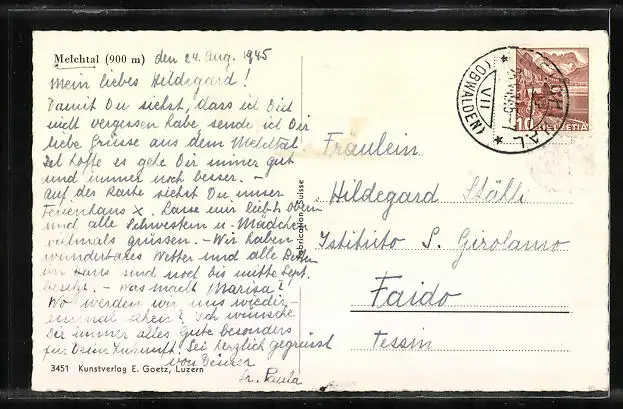 Melchtal (900 m) den 24. Aug. 1945
Mein liebes Hildegard!
Damit Du siehst, dass ich Dich
nicht vergessen habe, sende ich Dir
liebe Grüsse aus dem Melchtal.
Ich hoffe es gehe Dir immer gut
und immer noch besser. –
Auf der Karte siehst Du unser
Ferienhaus X. Lasse mir lieb
und alle Schwestern u. Mädchen
vielmals grüssen. – Wir haben
wunderbares Wetter und alle Betten
im Haus sind noch bis mitte Sept.
besetzt. – Was macht Marisa?
Wo werden wir uns wieder
einmal sehen? Ich wünsche
Dir immer alles Gute besonders
für Deine Zukunft. Sei herzlich gegrüsst
von Deiner
Sr. Paula
3451 Kunstverlag E. Goetz, Luzern
Fabrication Suisse
Fräulein
Hildegard Ställi
Istituto S. Girolamo
Faido
Tessin
(OBWALDEN)
VII
10 HELVETIA